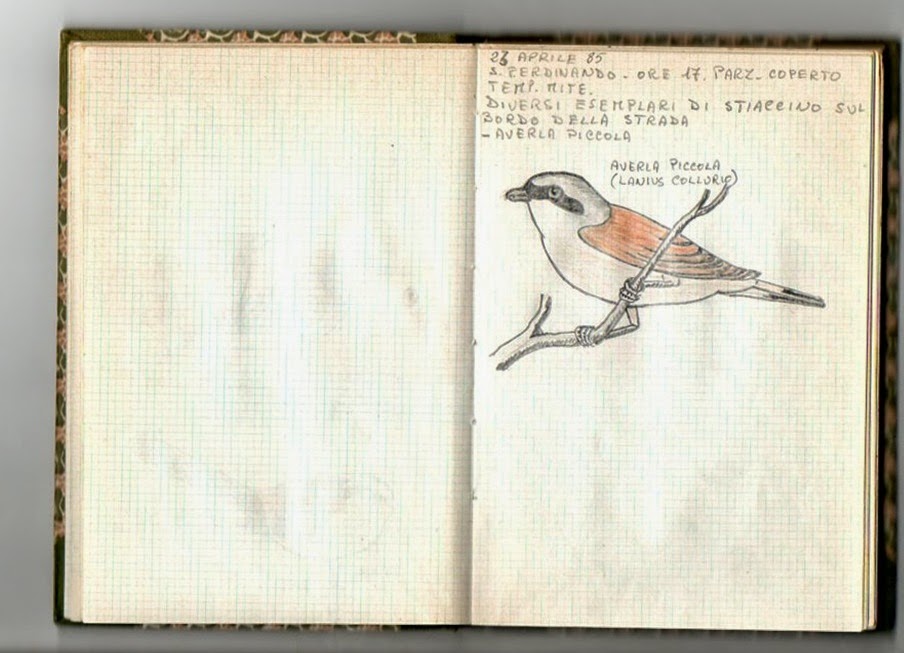 APRILE 85
S. FERDINANDO - ORE 17. PARZ. COPERTO
TEMP. MITE.
DIVERSI ESEMPLARI DI STIACCINO SUL
BORDO DELLA STRADA
- AVERLA PICCOLA
AVERLA PICCOLA
(LANIUS COLLURIO)